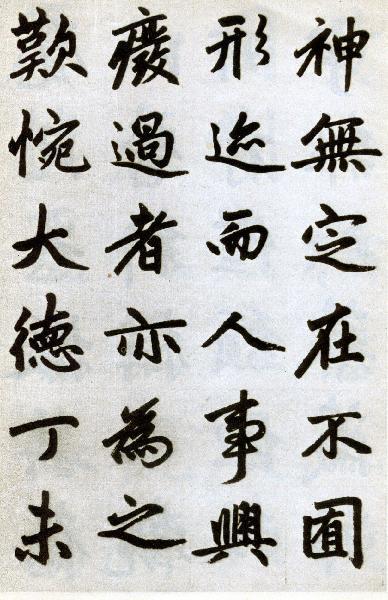 神無定在不囿
形迹而人事興
癈過者亦為之
歎惋大德丁未